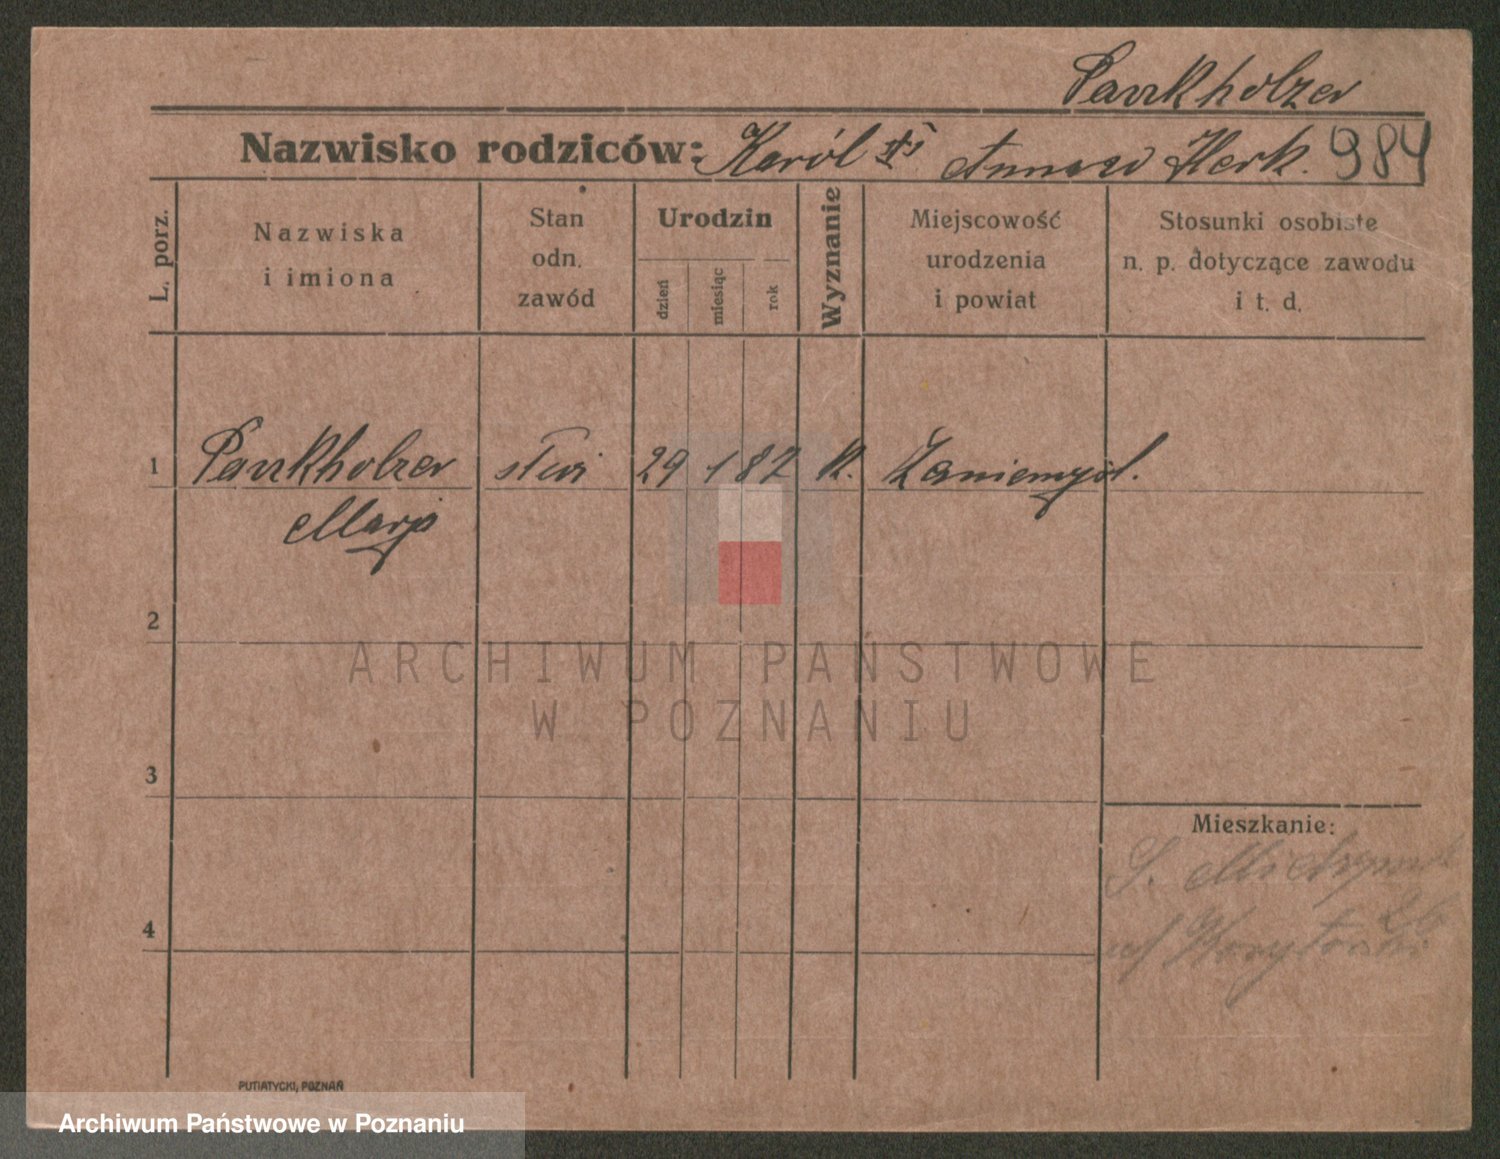 Pankholzer
Nazwisko rodziców: Karól Anna Herk. 984
L. porz.
Nazwiska
i imiona
Stan
odn.
zawód
Urodzin
dzień
miesiąc
rok
Wyznanie
Miejscowość
urodzenia
i powiat
Stosunki osobiste
n. p. dotyczące zawodu
i t. d.
1 Pankholzer 29 1 87 K. Zaniemyśl.
Marja
2
ARCHIWUM PAŃSTWOWE
W POZNANIU
3
Mieszkanie:
4
PUTIATYCKI, POZNAŃ
Archiwum Państwowe w Poznaniu